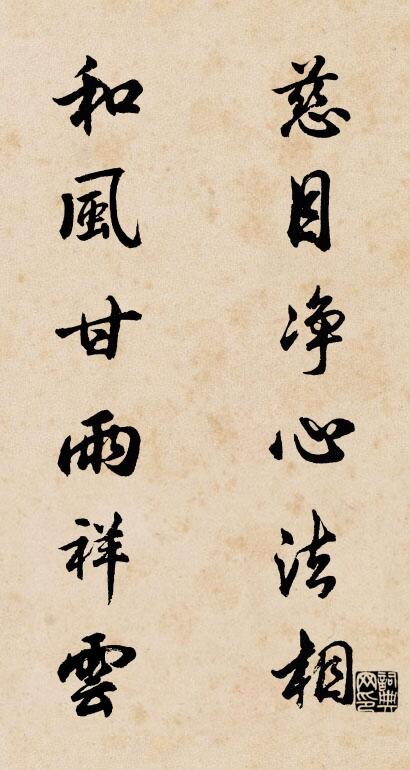 慈目净心法相
和風甘雨祥雲
詞典网印